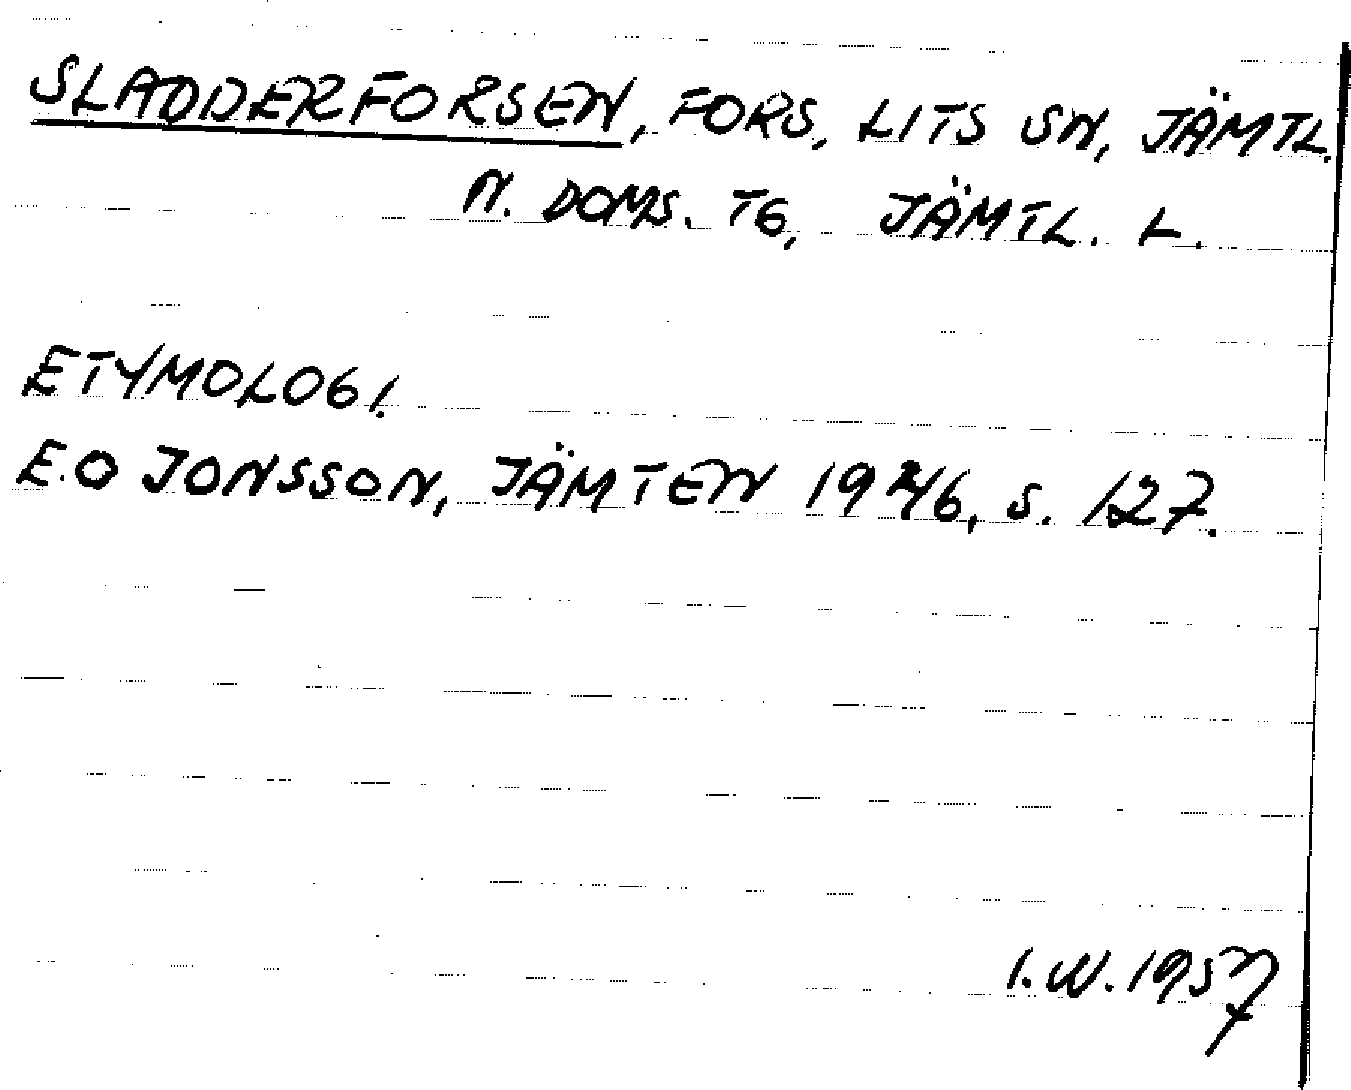 SLADDERFORSEN, FORS, LITS SN, JÄMTL.
N. DOMS. TG, JÄMTL. L.
ETYMOLOGI.
E.O JONSSON, JÄMTEN 1946, S. 127.
I.W.1957